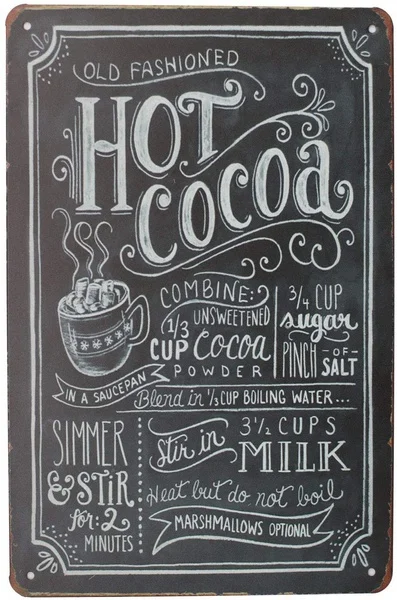 OLD FASHIONED
HOT
COCOA
COMBINE:
1/3 UNSWEETENED
CUP Cocoa
POWDER
3/4 CUP
sugar
PINCH -OF- SALT
IN A SAUCEPAN
Blend in 1/3 CUP BOILING WATER...
SIMMER
& STIR
for: 2
MINUTES
Stir in 3 1/2 CUPS
MILK
Heat but do not boil
MARSHMALLOWS OPTIONAL